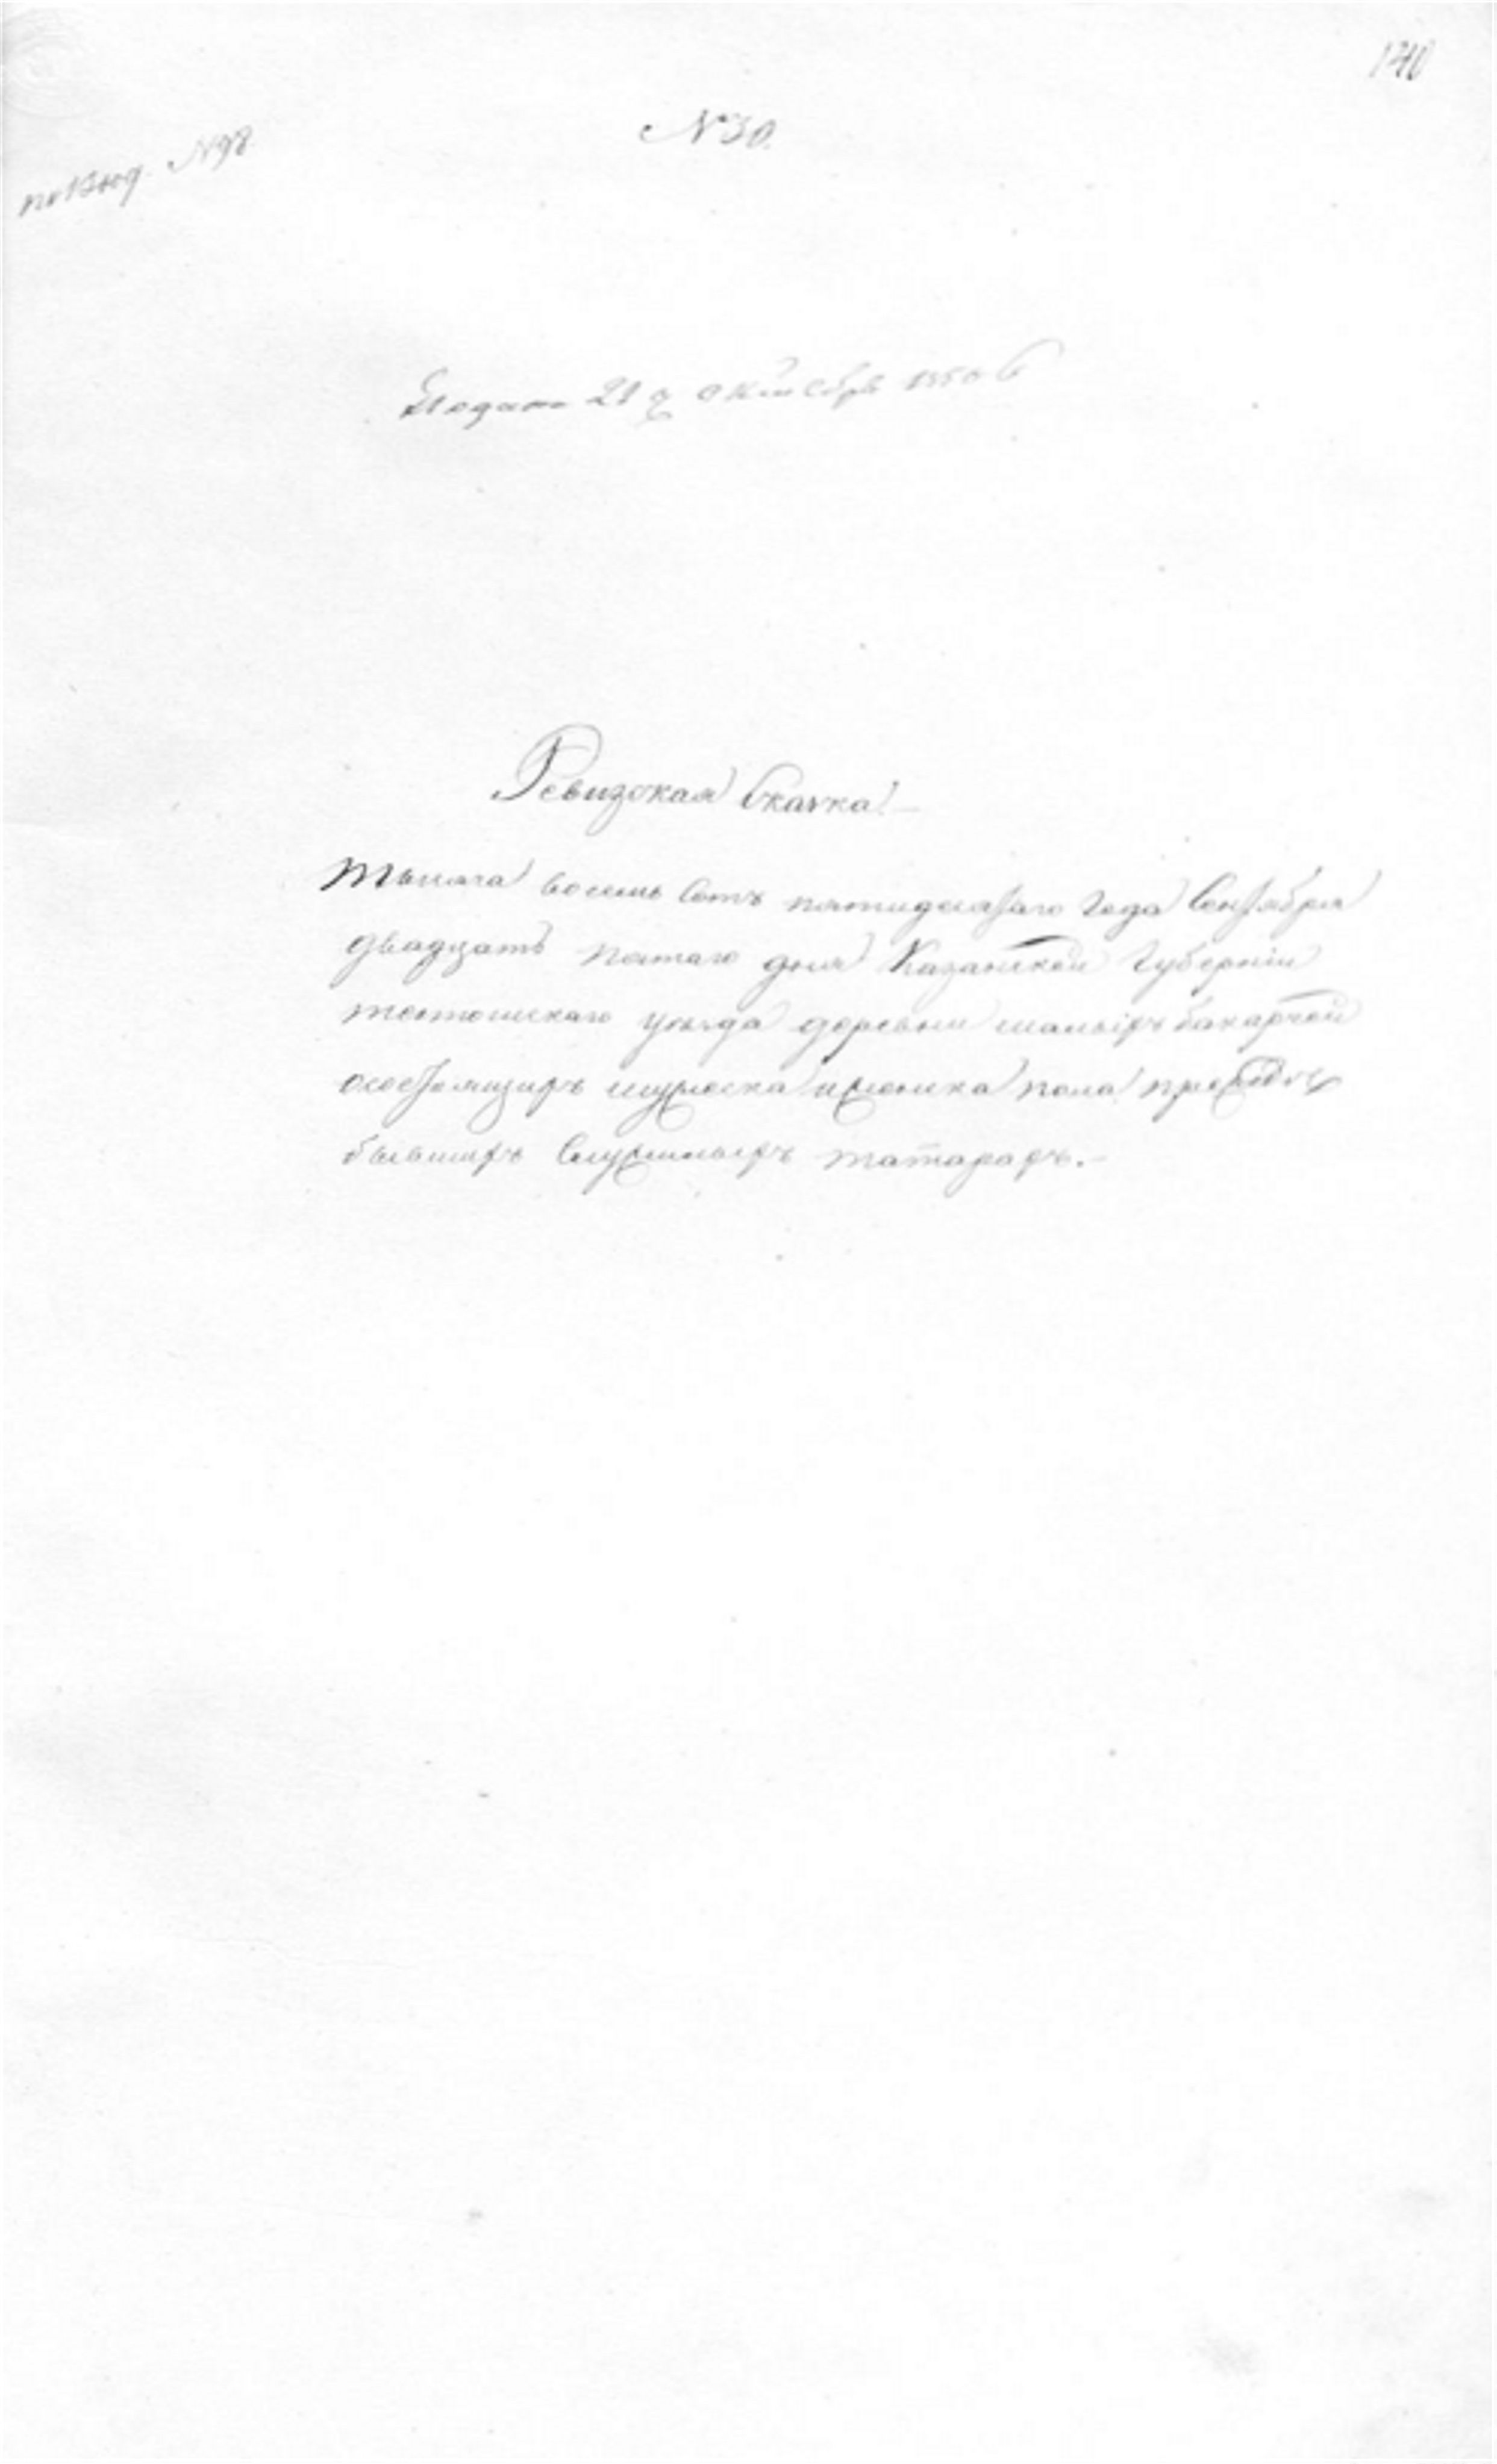 140
№ 30.
№ 98
Подана 21 Октября 1850 г
Ревизская Сказка
Тысяча восемь Сотъ пятидесятаго Года Сентября
двадцать пятаго дня Казанской Губерніи
тетюшскаго уезда деревни малыхъ
о состоящихъ мужеска и женска пола
бывшихъ Служилыхъ татарахъ.